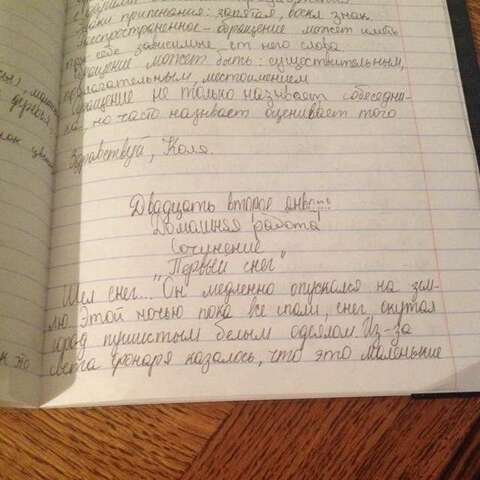 Знаки препинания: запятая, воскл знак.
Распространенное - обращение может иметь
при себе зависимые от него слова
Обращение может быть: существительным,
прилагательным, местоимением
Обращение не только называет собеседни-
ка, но часто называет оценивает того
Здравствуй, Коля.
Двадцать второе января
Домашняя работа
Сочинение
„Первый снег"
Шел снег... Он медленно опускался на зем-
лю Этой ночью пока все спали, снег окутал
город пушистым белым одеялом Из-за
света фонаря казалось, что это маленькие